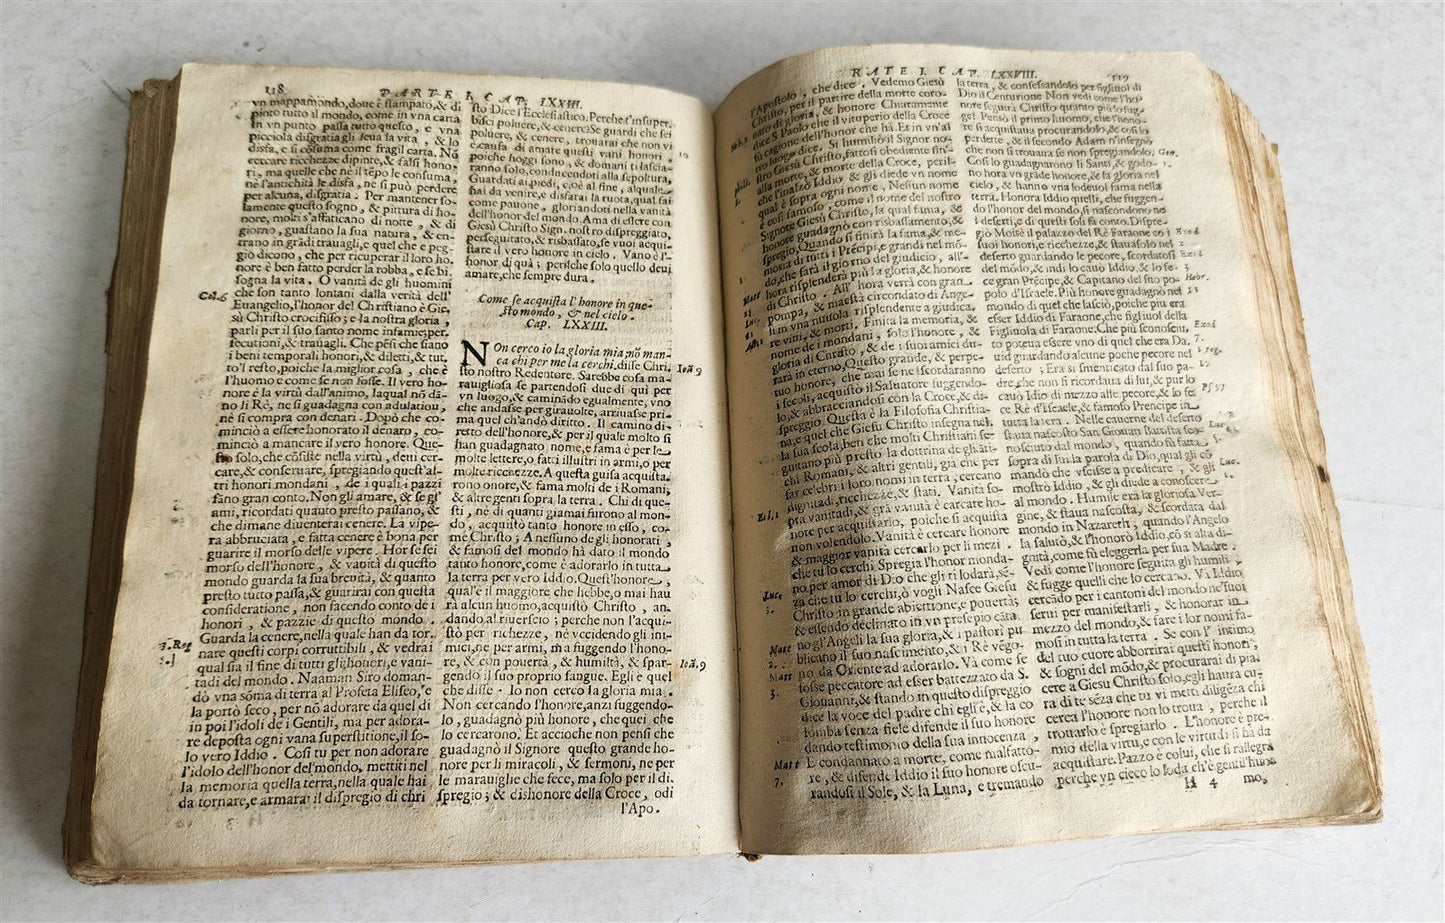 118. PARTE I. CAP. LXXIII.
vn mappamondo, doue è stampato, & di
pinto tutto il mondo, come in vna carta
In vn punto passa tutto questo, e vna
picciola disgratia gli leua la vita, & lo
disfa, e si cõsuma come fragil carta. Nõ
cercare ricchezze dipinte, & falsi hono-
ri, ma quelle che nè il tẽpo le consuma,
nè l'antichità le disfa, ne si può perdere
per alcuna, disgratia. Per mantener so-
lamente questo sogno, & pittura di ho-
nore, molti s'affaticano di notte, & di
giorno, guastano la sua natura, & en-
trano in grãdi trauagli, e quel che e peg-
gio dicono, che per ricuperar il loro ho-
nore è ben fatto perder la robba, e se bi-
sogna la vita. O vanità de gli huomini
Col. 6 che son tanto lontani dalla verità dell'
Euangelio, l'honor del Christiano è Gie-
sù Christo crocifisso; e la nostra gloria,
parli per il suo santo nome infamie; per-
secutioni, & trauagli. Che pẽsi che siano
i beni temporali honori, & diletti, & tut.
to'l resto, poiche la miglior cosa, che è
l'huomo e come se non fosse. Il vero ho-
nore è la virtù dall'animo, laqual nõ dã-
no li Rè, ne si guadagna con adulatiou,
nè si compra con denari. Dopò che co-
minciò a essere honorato il denaro, co-
minciò a mancare il vero honore. Que-
sto solo, che cõsiste nella virtù, deui cer-
care, & conseruare, spregiando quest'al-
tri honori mondani, de i quali i pazzi
fãno gran conto. Non gli amare, & se gl'
ami, ricordati quãto presto passano, &
che dimane diuenterai cenere. La vipe-
ra abbruciata, e fatta cenere è bona per
guarire il morso delle vipere. Hor se sei
morso dell'honore, & vanità di questo
mondo guarda la sua breuità, & quanto
presto tutto passa, & guarirai con questa
consideratione, non facendo conto de i
honori, & pazzie di questo mondo.
Guarda la cenere, nella quale han da tor.
3. Reg 5. nare questi corpi corruttibili, & vedrai
qual sia il fine di tutti gli honori, e vani-
tadi del mondo. Naaman Siro doman-
dò vna sõma di terra al Profeta Eliseo, e
la portò seco, per nõ adorare da quel di
in poi l'idoli de i Gentili, ma per adora-
re deposta ogni vana superstitione, il so-
lo vero Iddio. Così tu per non adorare
l'idolo dell'honor del mondo, mettiti nel
la memoria quella terra, nella quale hai
da tornare, e armarai il dispregio di chri
sto Dice l'Ecclesiastico. Perche t'insuper.
bisci poluere, & cenere? Se guardi che sei
poluere, & cenere, trouarai che non vi
causa di amare questi vani honori, 10
poiche hoggi sono, & domani ti lascia-
ranno solo, conducendoti alla sepoltura,
Guardati ai piedi, cioè al fine, alquale
hai da venire, e disfarai la ruota, qual fai
come pauone, gloriandoti nella vanità
dell'honor del mondo. Ama di esser con
Giesù Christo Sign. nostro dispreggiato,
perseguitato, & risbassato, se vuoi acqui-
stare il vero honore in cielo. Vano è l'-
honor di quà; perilche solo quello deui
amare, che sempre dura.
Come se acquista l'honore in que-
sto mondo, & nel cielo.
Cap. LXXIII.
NOn cerco io la gloria mia; nõ man-
ca chi per me la cerchi, disse Chri. Ioã 9
sto nostro Redentore. Sarebbe cosa ma-
rauigliosa se partendosi due di qui per
vn luogo, & caminãdo egualmente, vno
che andasse per girauolte, arriuasse pri-
ma quel ch'andò diritto. Il camino di-
retto dell'honore, & per il quale molto si
han guadagnato nome, e fama è per le
molte lettere, o fatti illustri in armi, o per
molte ricchezze. A questa guisa acquista.
rono onore, & fama molti de i Romani,
& altre genti sopra la terra. Chi di que-
sti, nè di quanti giamai furono al mon-
do, acquistò tanto honore in esso, co-
me Christo; A nessuno de gli honorati,
& famosi del mondo hà dato il mondo
tanto honore, come è adorarlo in tutta
la terra per vero Iddio. Quest'honore,
qual'è il maggiore che hebbe, o mai hau
rà alcun huomo, acquistò Christo, an
dando al riuerscio; perche non l'acqui-
stò per richezze, nè vccidendo gli ini-
mici, ne per armi, ma fuggendo l'hono-
re, & con pouertà, & humiltà, & spar- Ioã. 9
gendo il suo proprio sangue. Egli è quel
che disse. Io non cerco la gloria mia.
Non cercando l'honore, anzi fuggendo-
lo, guadagnò più honore, che quei che
lo cercarono. Et accioche non pensi che
guadagnò il Signore questo grande ho-
nore per li miracoli, & sermoni, ne per
le marauiglie che fece, ma solo per il di.
spregio; & dishonore della Croce, odi
l'Apo.
RATE I. CAP. LXXVIII. 119
l'Apostolo, che dice. Vedemo Giesù
Christo, per il partire della morte coro-
nato di gloria, & honore Chiaramente
dice S. Paolo che il vituperio della Croce
fù cagione dell'honor che hà. Et in vn'al
tro luogo dice. Si humiliò il Signor no-
stro Giesù Christo, fattosi obediente sin'-
alla morte, & morte della Croce, peril-
che l'inalzò Iddio & gli diede vn nome
qual è sopra ogni nome, Nessun nome
è così famoso, come il nome del nostro
Signore Giesù Christo, la qual fama, &
honore guadagnò con risbassamento, &
spregio, Quando si finirà la fama, & me-
moria di tutti i Prẽcipi, e grandi nel mõ-
do, che sarà il giorno del giudicio, all'-
hora risplenderà più la gloria, & honore
di Christo. All'hora verrà con gran
pompa, & maestà circondato di Ange-
li in vna nuuola risplendente a giudica-
re viui, & morti, Finita la memoria, &
nome de i mondani, solo l'honore, &
gloria di Christo, & de i suoi amici du-
rarà in eterno, Questo grande, & perpe-
tuo honore, che mai se ne scordaranno
i secoli, acquistò il Saluatore fuggendo-
lo, & abbracciandosi con la Croce, & di-
spreggio. Questa è la Filosofia Christia-
na, e quel che Giesu Christo insegna nel.
la sua scola, ben che molti Christiani se-
guitano più presto la dottrina de gli āti-
chi Romani, & altri gentili, già che per
far celebri i loro nomi in terra, cercano
dignitadi, ricchezze, & stati. Vanità so-
Ecl. 1 pra vanitadi, & grã vanità è carcare ho-
nore per acquistarlo, poiche si acquista
non volendolo. Vanità è cercare honore
& maggior vanità cercarlo per li mezi.
che tu lo cerchi Spregia l'honor monda-
no per amor di Dio che gli ti lodarà, sẽ-
Luc. 2. za che tu lo cerchi, ò vogli Nasce Giesu
Christo in grande abiettione, e pouertà;
& essendo declinato in vn presepio cãta.
Matt 2. no gl'Angeli la sua gloria, & i pastori pu
blicano il suo nascimento, & i Rè vẽgo-
Matt 3. no da Oriente ad adorarlo. Và come se
fosse peccatore ad esser battezzato da S.
Giouanni, & stando in questo dispreggio
dice la voce del padre chi egli è, & la co
lomba senza fiele difende il suo honore
dando testimonio della sua innocenza,
Matt 7. E condannato a morte, come malfatto-
re, & difende Iddio il suo honore oscu-
randosi il Sole, & la Luna, e tremando
la terra, & confessandolo per figliuol di
Dio il Centurione Non vedi come l'ho-
nore seguita Christo quanto più lo fug-
ge? Pensò il primo huomo, che l'hono-
re si acquistaua procurandolo, & così lo
perdette, & il secondo Adam n'insegnò
che non si trouaua se non spregiandolo, Gen.
Così lo guadagnarono li Santi, & godo-
no hora vn grãde honore, & la gloria nel
cielo, & hanno vna lodeuol fama nella
terra. Honora Iddio quelli, che fuggen-
do l'honor del mondo, si nascondono ne
i deserti, e di questi solí fa conto. Dispre-
giò Moisè il palazzo del Rè Faraone co i Exod
suoi honori, e ricchezze, & stauasolo nel
deserto guardando le pecore, scordatosi
del mõdo, & indi lo cauò Iddio, & lo fe-
ce gran Prẽcipe, & Capitano del suo po- Hebr.
polo d'Israele. Più honore guadagnò nel 11
mondo di quel che lasciò, poiche più era
esser Iddio di Faraone, che figliuol della
Figliuola di Faraone. Che più sconosciu. Exod
to poteua essere vno di quel che era Da. 7.
uid guardando alcune poche pecore nel
deserto; Era sì smenticato dal suo pa-
dre, che non si ricordaua di lui, & pur lo
cauò Idio di mezo alle pecore, & lo fe-
ce Rè d'Israele, & famoso Prencipe in
tutta la terra. Nelle cauerne del deserto
staua nascosto San Giouan Battista sco-
nosciuto dal mondo, quando fù fatta
sopra di lui la parola di Dio, qual gli cõ
mandò che vscisse a predicare, & gli Luc.
mostrò Iddio, & gli diede a conoscere
al mondo. Humile era la gloriosa Ver-
gine, & staua nascosta, & scordata dal
mondo in Nazareth, quando l'Angelo
la salutò, & l'honorò Iddio, cõ sì alta di-
gnità, come fù eleggerla per sua Madre.
Vedi come l'honore seguita gli humili
& fugge quelli che lo cercano. Và Iddio
cercãdo per i cantoni del mondo ne suoi
serui per manifestarli, & honorar in
mezzo del mondo, & fare i lor nomi fa-
mosi in tutta la terra. Se con l'intimo
del tuo cuore abborrirai questi honori,
& sogni del mõdo, & procurarai di pia-
cere a Giesu Christo solo, egli haura cu-
ra di te sẽza che tu vi metti diligẽza chi
cerca l'honore non lo troua, perche il
trouarlo è spregiarlo. L'honore è pre-
mio della virtu, e con le virtu di si hà da
acquistare. Pazzo è colui, che si rallegra
perche vn cieco lo loda ch'è gentil'huo-
H 4 mo,